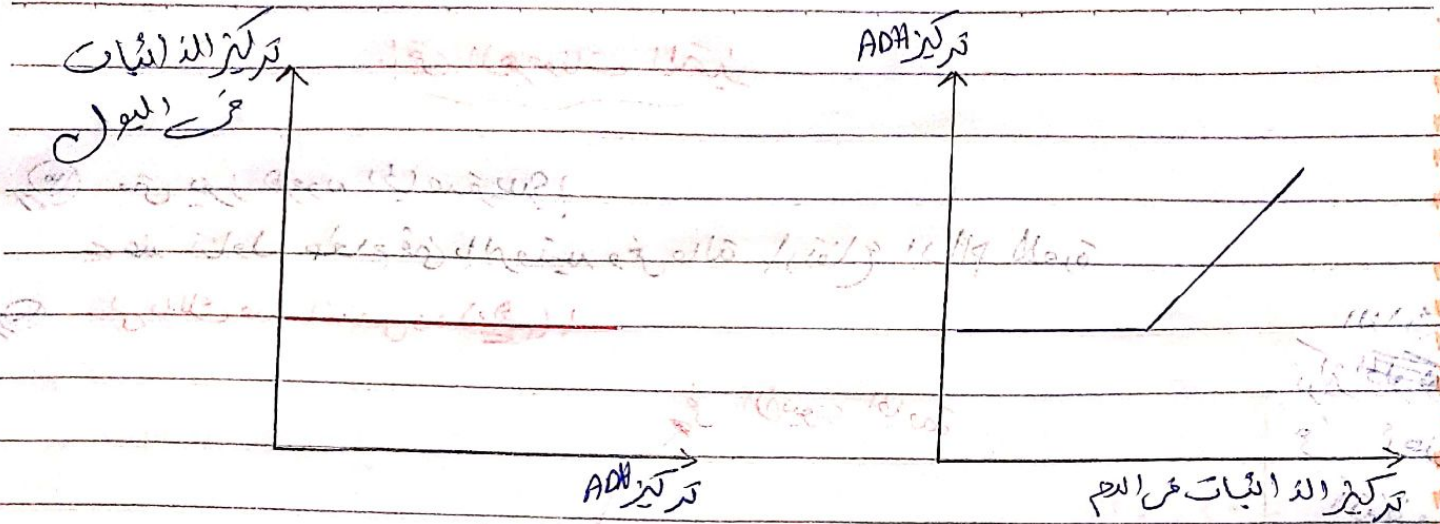 تركيز الذائبات
في البول
تركيز ADH
تركيز ADH
تركيز الذائبات في الدم